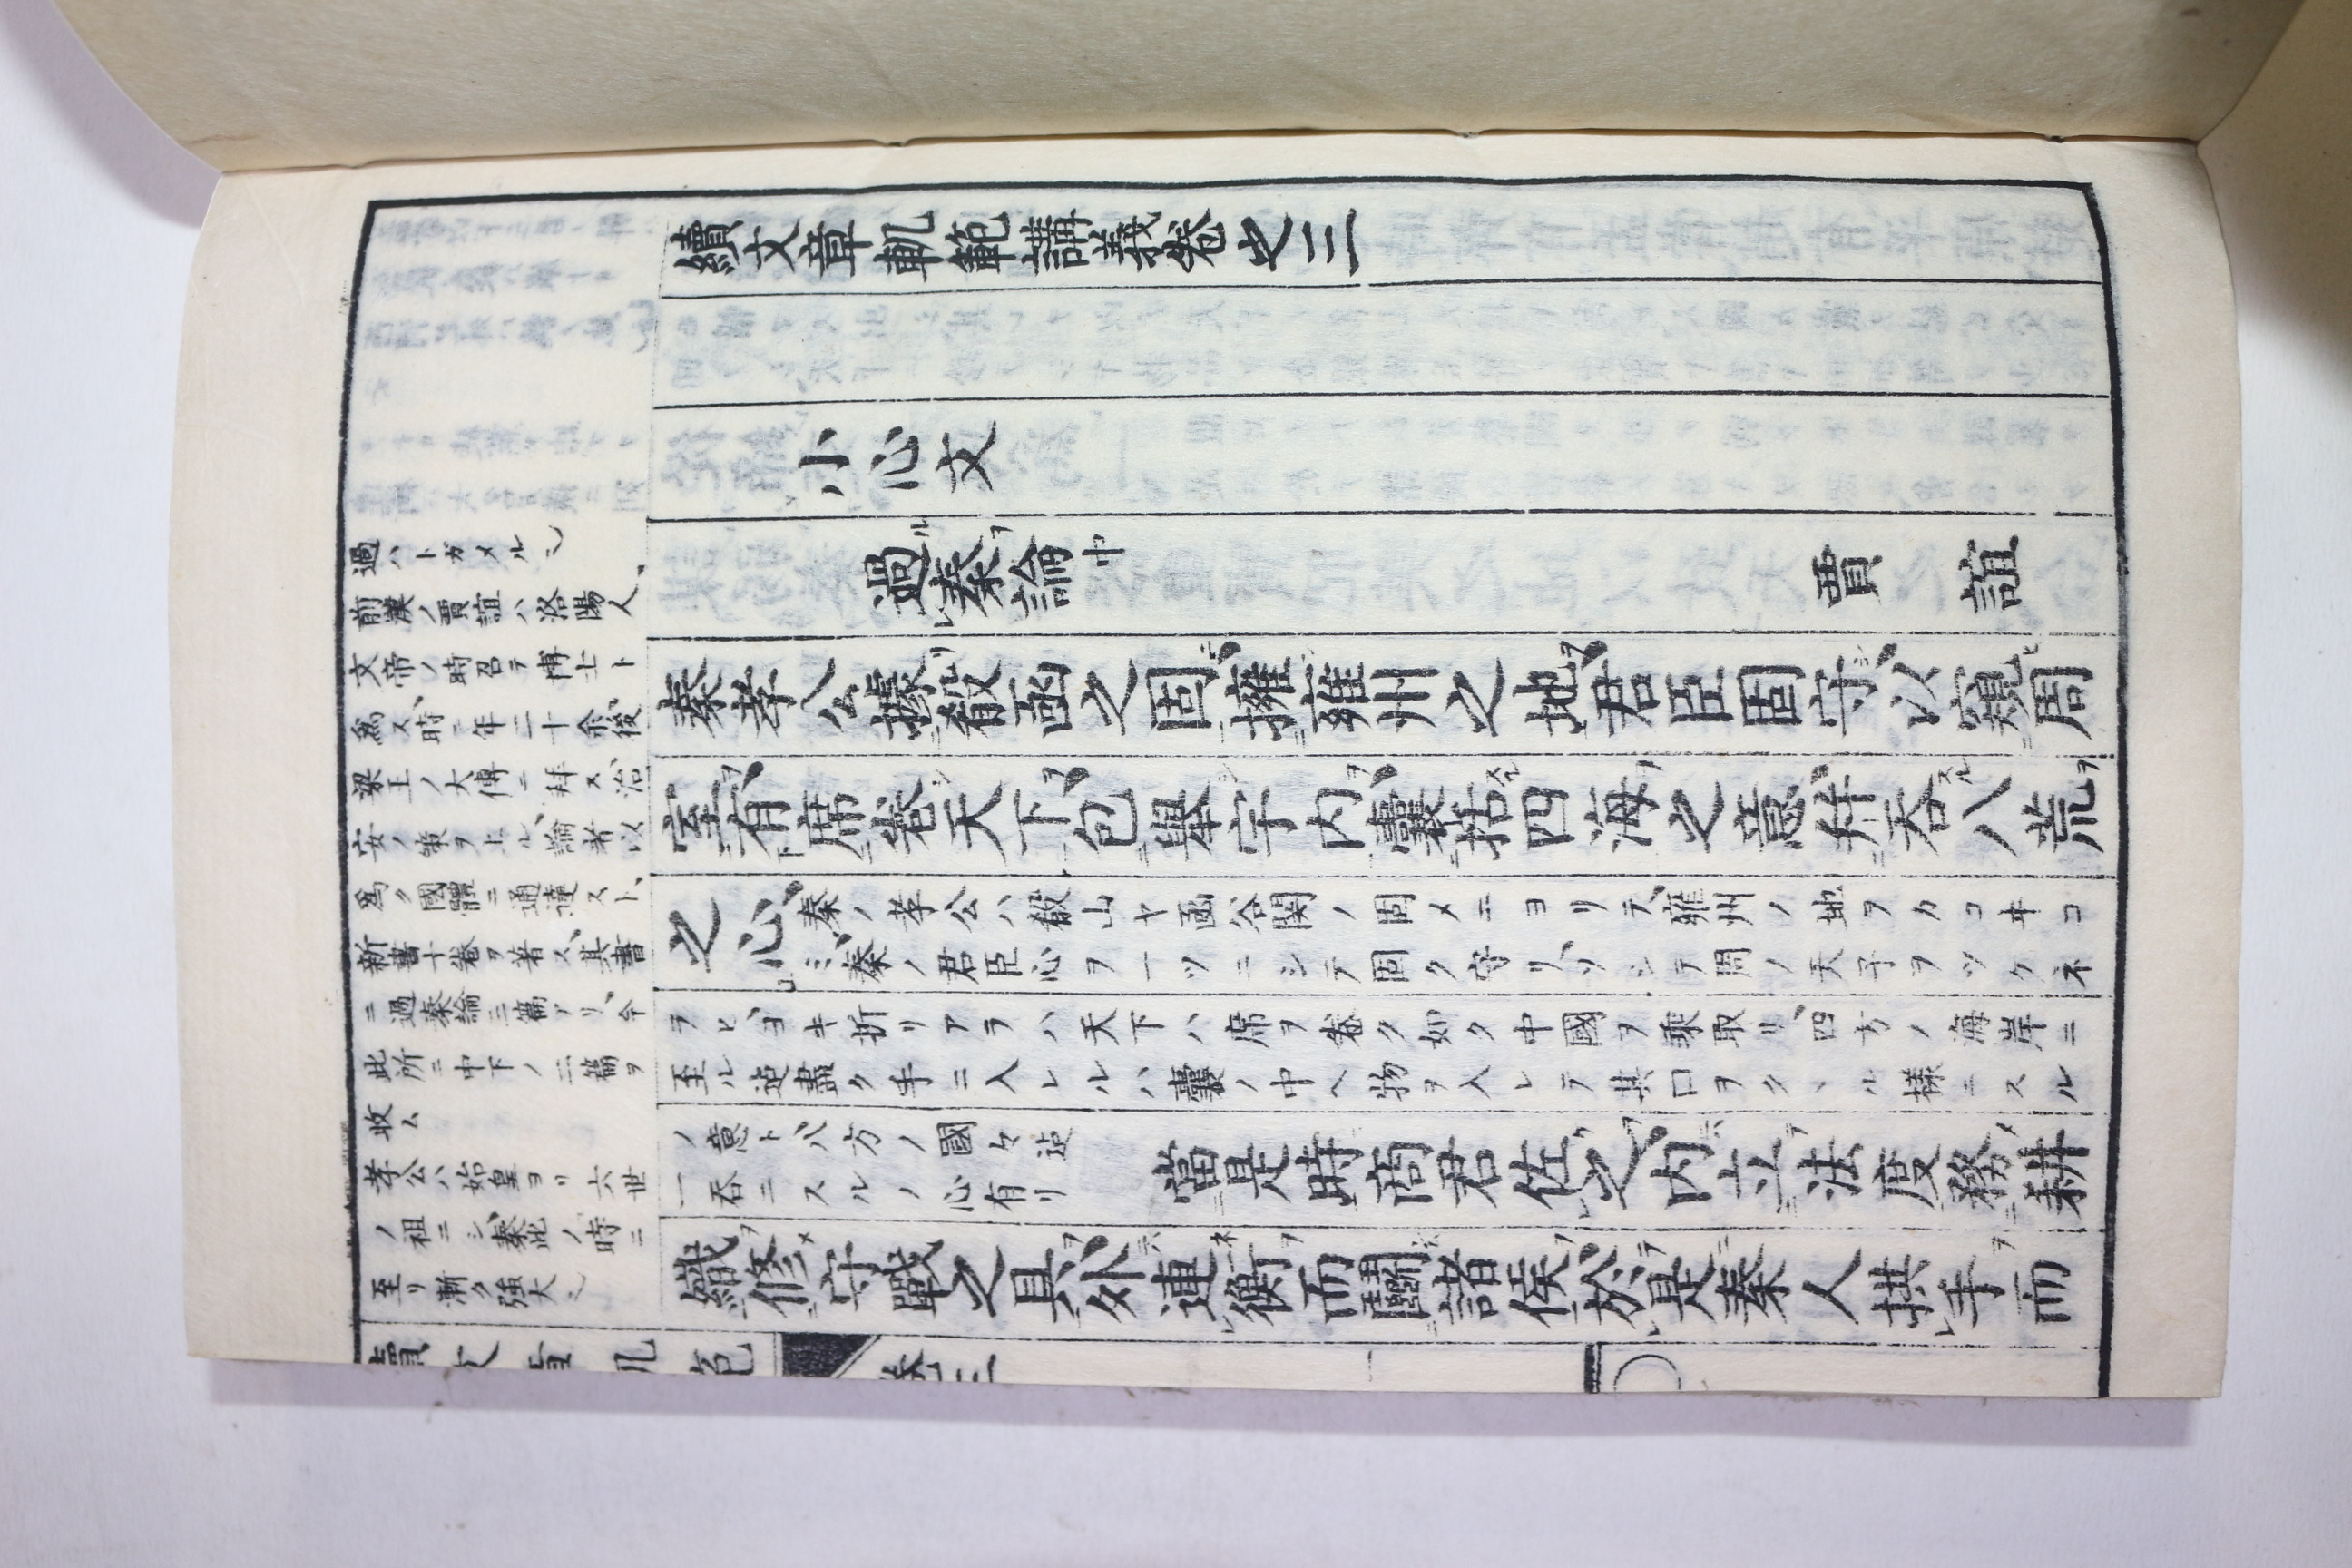 續文章軌範講義卷之三
小心文
過秦論中 賈誼
秦孝公據殽函之固、擁雍州之地、君臣固守、以窺周
室、有席卷天下、包舉宇内、囊括四海之意、并吞八荒
之心、
秦ノ孝公ハ殽山ヤ函谷関ノ固メニヨリテ、雍州ノ地ヲカコヰコ
ミ、秦ノ君臣心ヲ一ツニシテ固ク守リ、ソシテ周ノ天子ヲツケネ
ラヒ、ヨキ折リアラハ天下ハ席ヲ卷ク如ク中國ヲ乗取リ、四方ノ海岸ニ
至ル迠盡ク手ニ入レルハ囊ノ中ヘ物ヲ入レテ其口ヲクヽル様ニスル
ノ意ト、八方ノ國々迠
一吞ニスルノ心有リ
當是時商君佐之、内立法度務耕
織修守戰之具、外連衡而鬬諸侯、於是秦人拱手而
過ハトガメル也
前漢ノ賈誼ハ洛陽人、
文帝ノ時召テ博士ト
爲ス、時ニ年二十余、後
梁王ノ大傅ニ拜ス、治
安ノ策ヲ上ル、論者以
爲ク國體ニ通達スト、
新書十卷ヲ著ス、其書
ニ過秦論三篇アリ、今
此所ニ中下ノ二篇ヲ
收ム
孝公ハ始皇ヨリ六世
ノ祖ニシ、秦此ノ時ニ
至リ漸ク強大也
續文章軌範 卷三